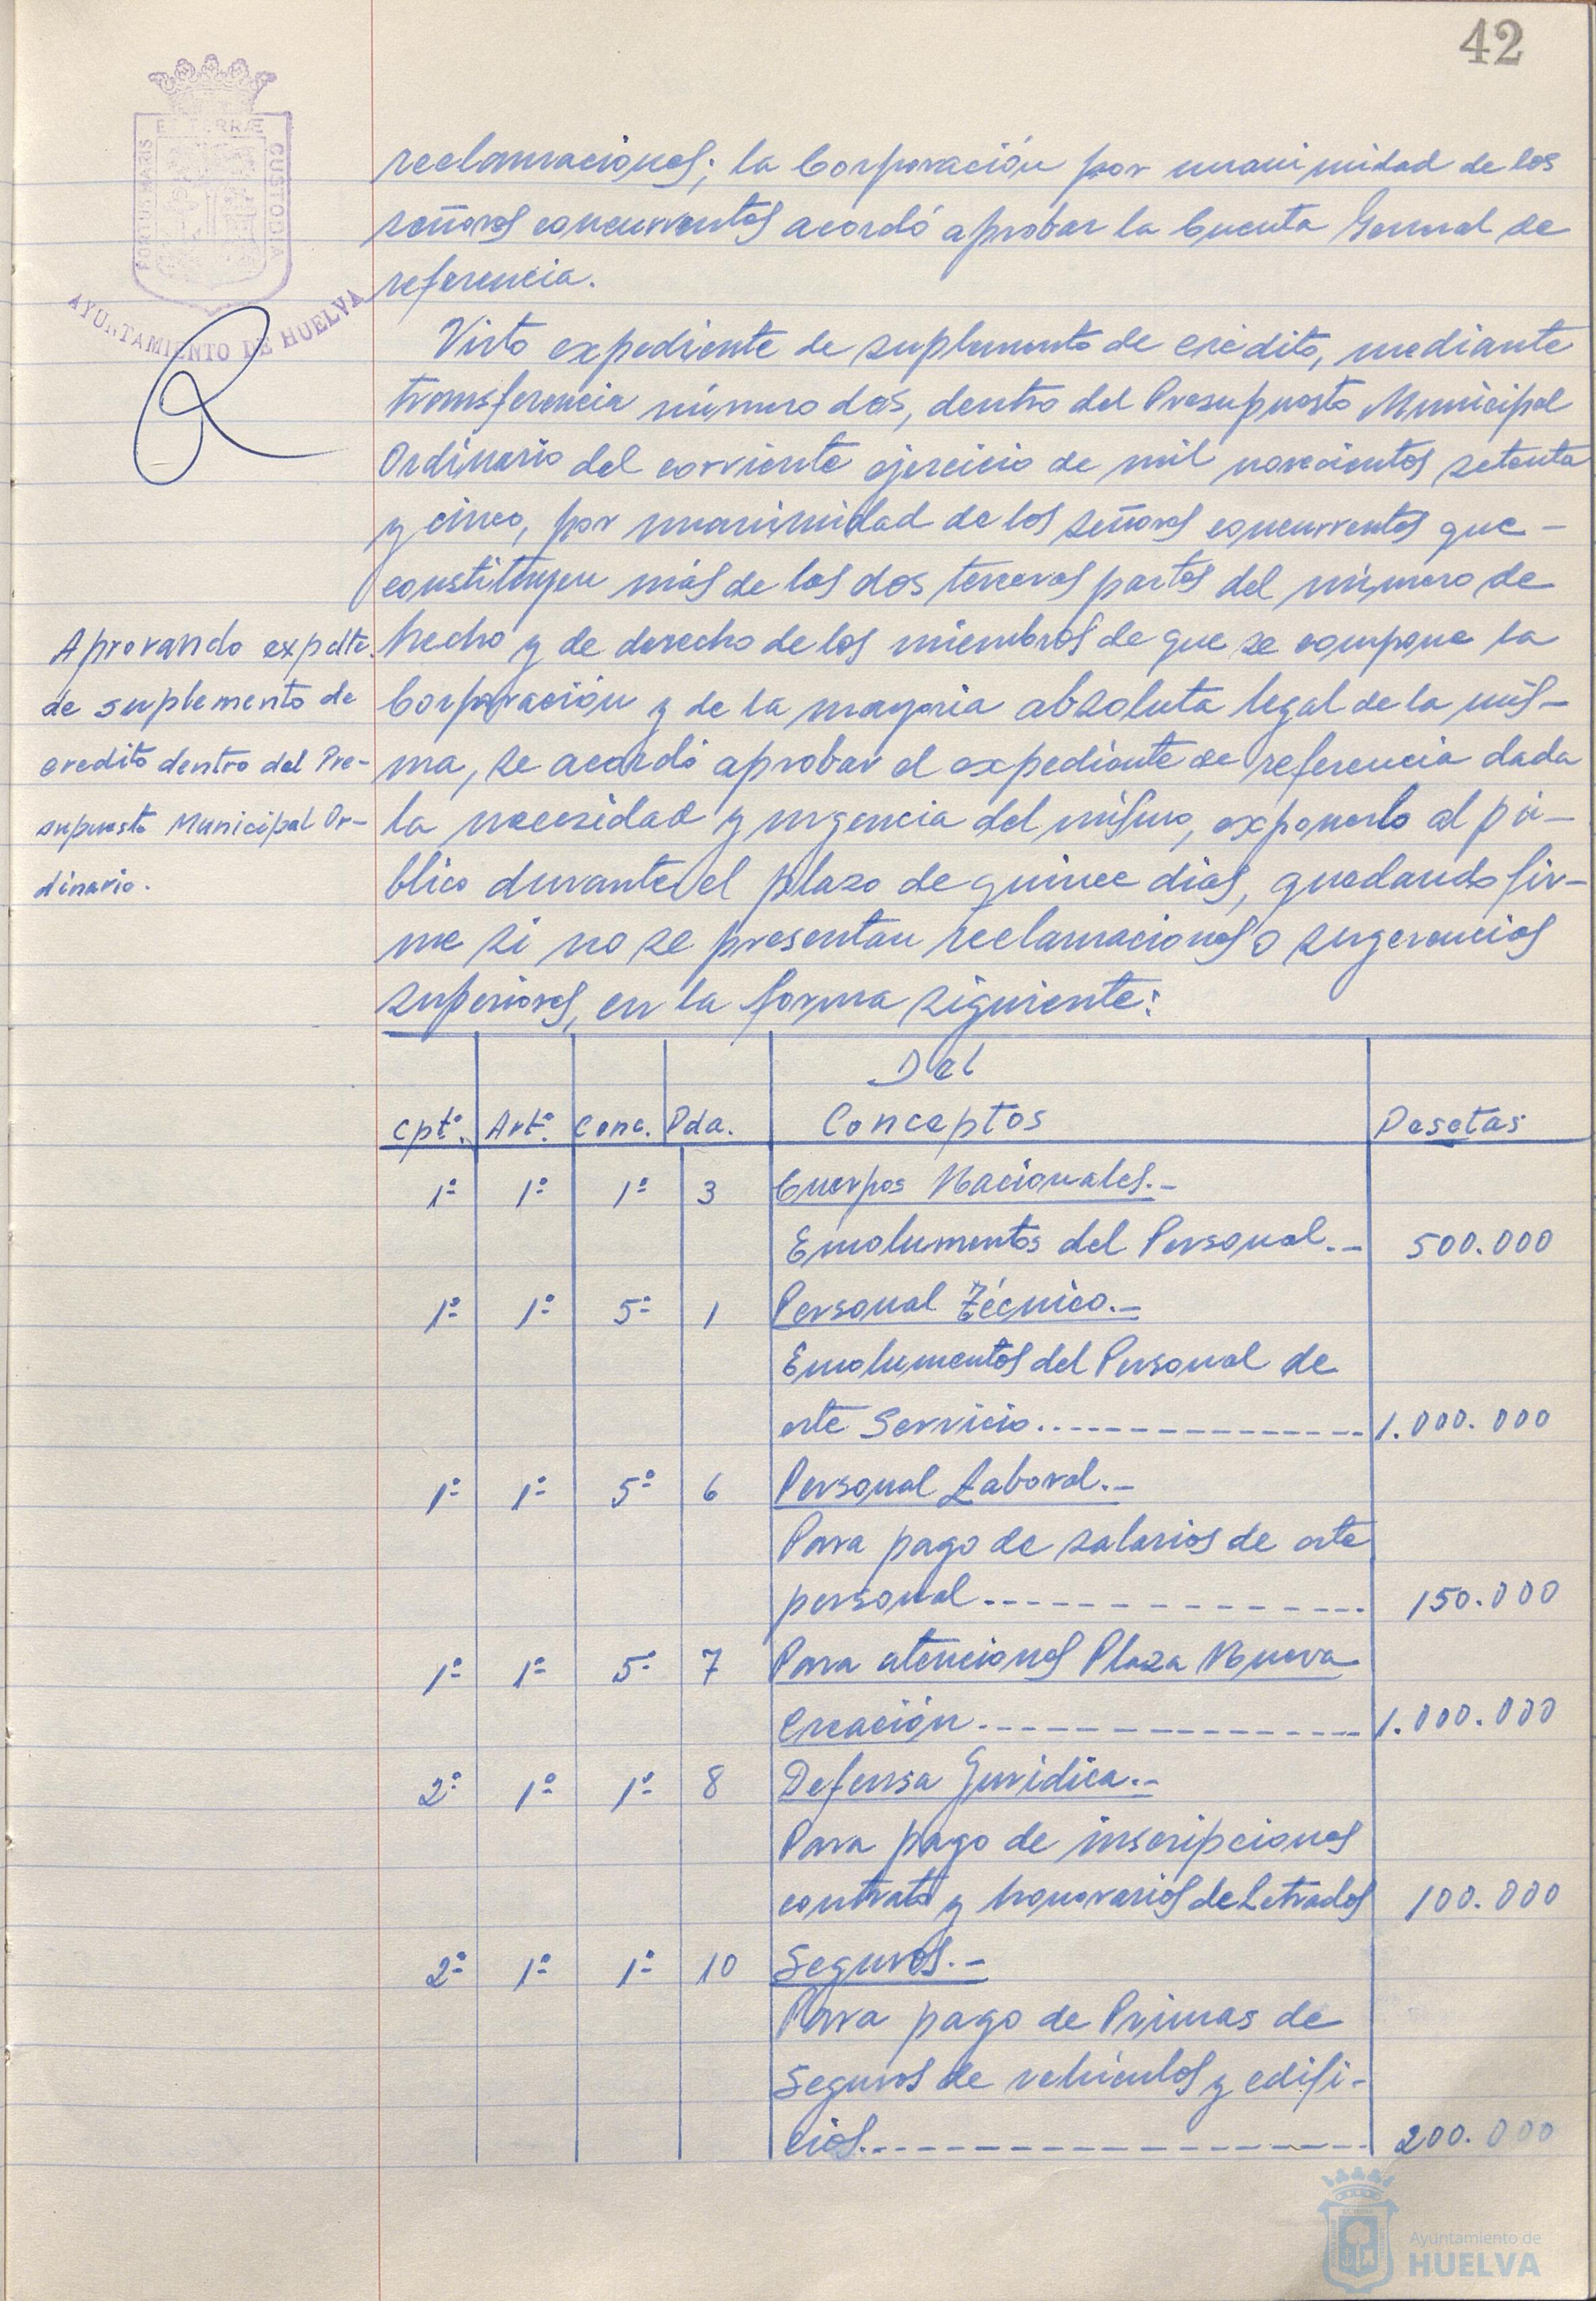 42
PORTUS MARIS
ET TERRÆ
CUSTODIA
AYUNTAMIENTO DE HUELVA
reclamaciones; la Corporación por unanimidad de los
señores concurrentes acordó aprobar la Cuenta General de
referencia.
Visto expediente de suplemento de crédito, mediante
transferencia número dos, dentro del Presupuesto Municipal
Ordinario del corriente ejercicio de mil novecientos setenta
y cinco, por unanimidad de los señores concurrentes que-
constituyen más de las dos terceras partes del número de
hecho y de derecho de los miembros de que se compone la
Corporación y de la mayoria absoluta legal de la mis-
ma, se acordó aprobar el expediente de referencia dada
la necesidad y urgencia del mismo, exponerlo al pú-
blico durante el plazo de quince dias, quedando fir-
me si no se presentan reclamaciones o sugerencias
superiores, en la forma siguiente:
Aprovando expdte.
de suplemento de
credito dentro del Pre-
supuesto Municipal Or-
dinario.
Del
Cptº. Artº. Conc. Pda. Conceptos Pesetas
1º 1º 1º 3 Cuerpos Nacionales.-
Emolumentos del Personal.- 500.000
1º 1º 5º 1 Personal Técnico.-
Emolumentos del Personal de
este Servicio.--------------- 1.000.000
1º 1º 5º 6 Personal Laboral.-
Para pago de salarios de este
personal.-------------- 150.000
1º 1º 5º 7 Para atenciones Plaza Nueva
Creación.--------------- 1.000.000
2º 1º 1º 8 Defensa Juridica.-
Para pago de inscripciones
contrato y honorarios de Letrados 100.000
2º 1º 1º 10 Seguros.-
Para pago de Primas de
Seguros de vehiculos y edifi-
cios.------------------- 200.000
Ayuntamiento de
HUELVA